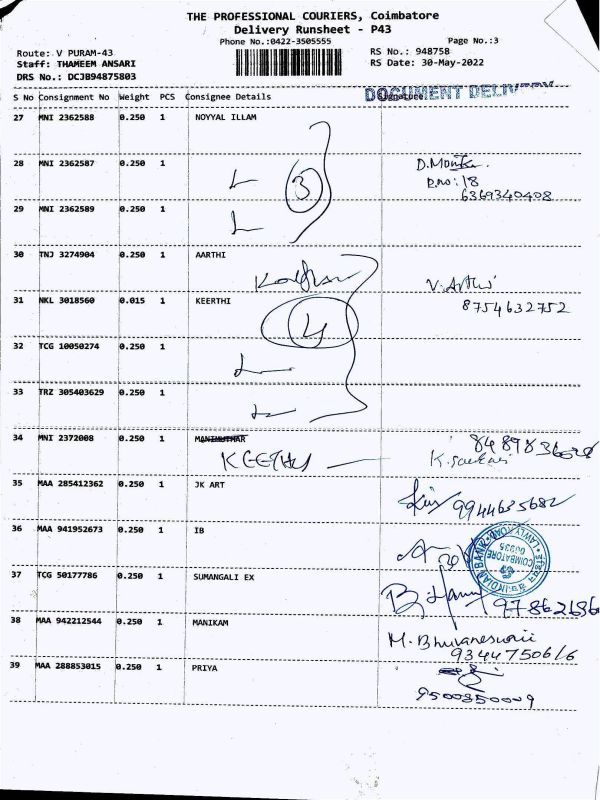 THE PROFESSIONAL COURIERS, Coimbatore
Delivery Runsheet - P43
Phone No.:0422-3505555 Page No.:3
Route: V PURAM-43 RS No.: 948758
Staff: THAMEEM ANSARI RS Date: 30-May-2022
DRS No.: DCJB94875803
DOCUMENT DELIVERY
S No Consignment No Weight PCS Consignee Details Signature
27 MNI 2362588 0.250 1 NOYYAL ILLAM
28 MNI 2362587 0.250 1 D.Monika.
3 D.no: 18
6369340408
29 MNI 2362589 0.250 1
30 TNJ 3274904 0.250 1 AARTHI
V. Arthi
31 NKL 3018560 0.015 1 KEERTHI 8754632752
4
32 TCG 10050274 0.250 1
33 TRZ 305403629 0.250 1
34 MNI 2372008 0.250 1 MANIMUTHAR
KEETHU
35 MAA 285412362 0.250 1 JK ART
9944635682
36 MAA 941952673 0.250 1 IB
INDIAN BANK LAWLY ROAD COIMBATORE
37 TCG 50177786 0.250 1 SUMANGALI EX
38 MAA 942212544 0.250 1 MANIKAM
M. Bhuvaneswari
9344750616
39 MAA 288853015 0.250 1 PRIYA
9500350009